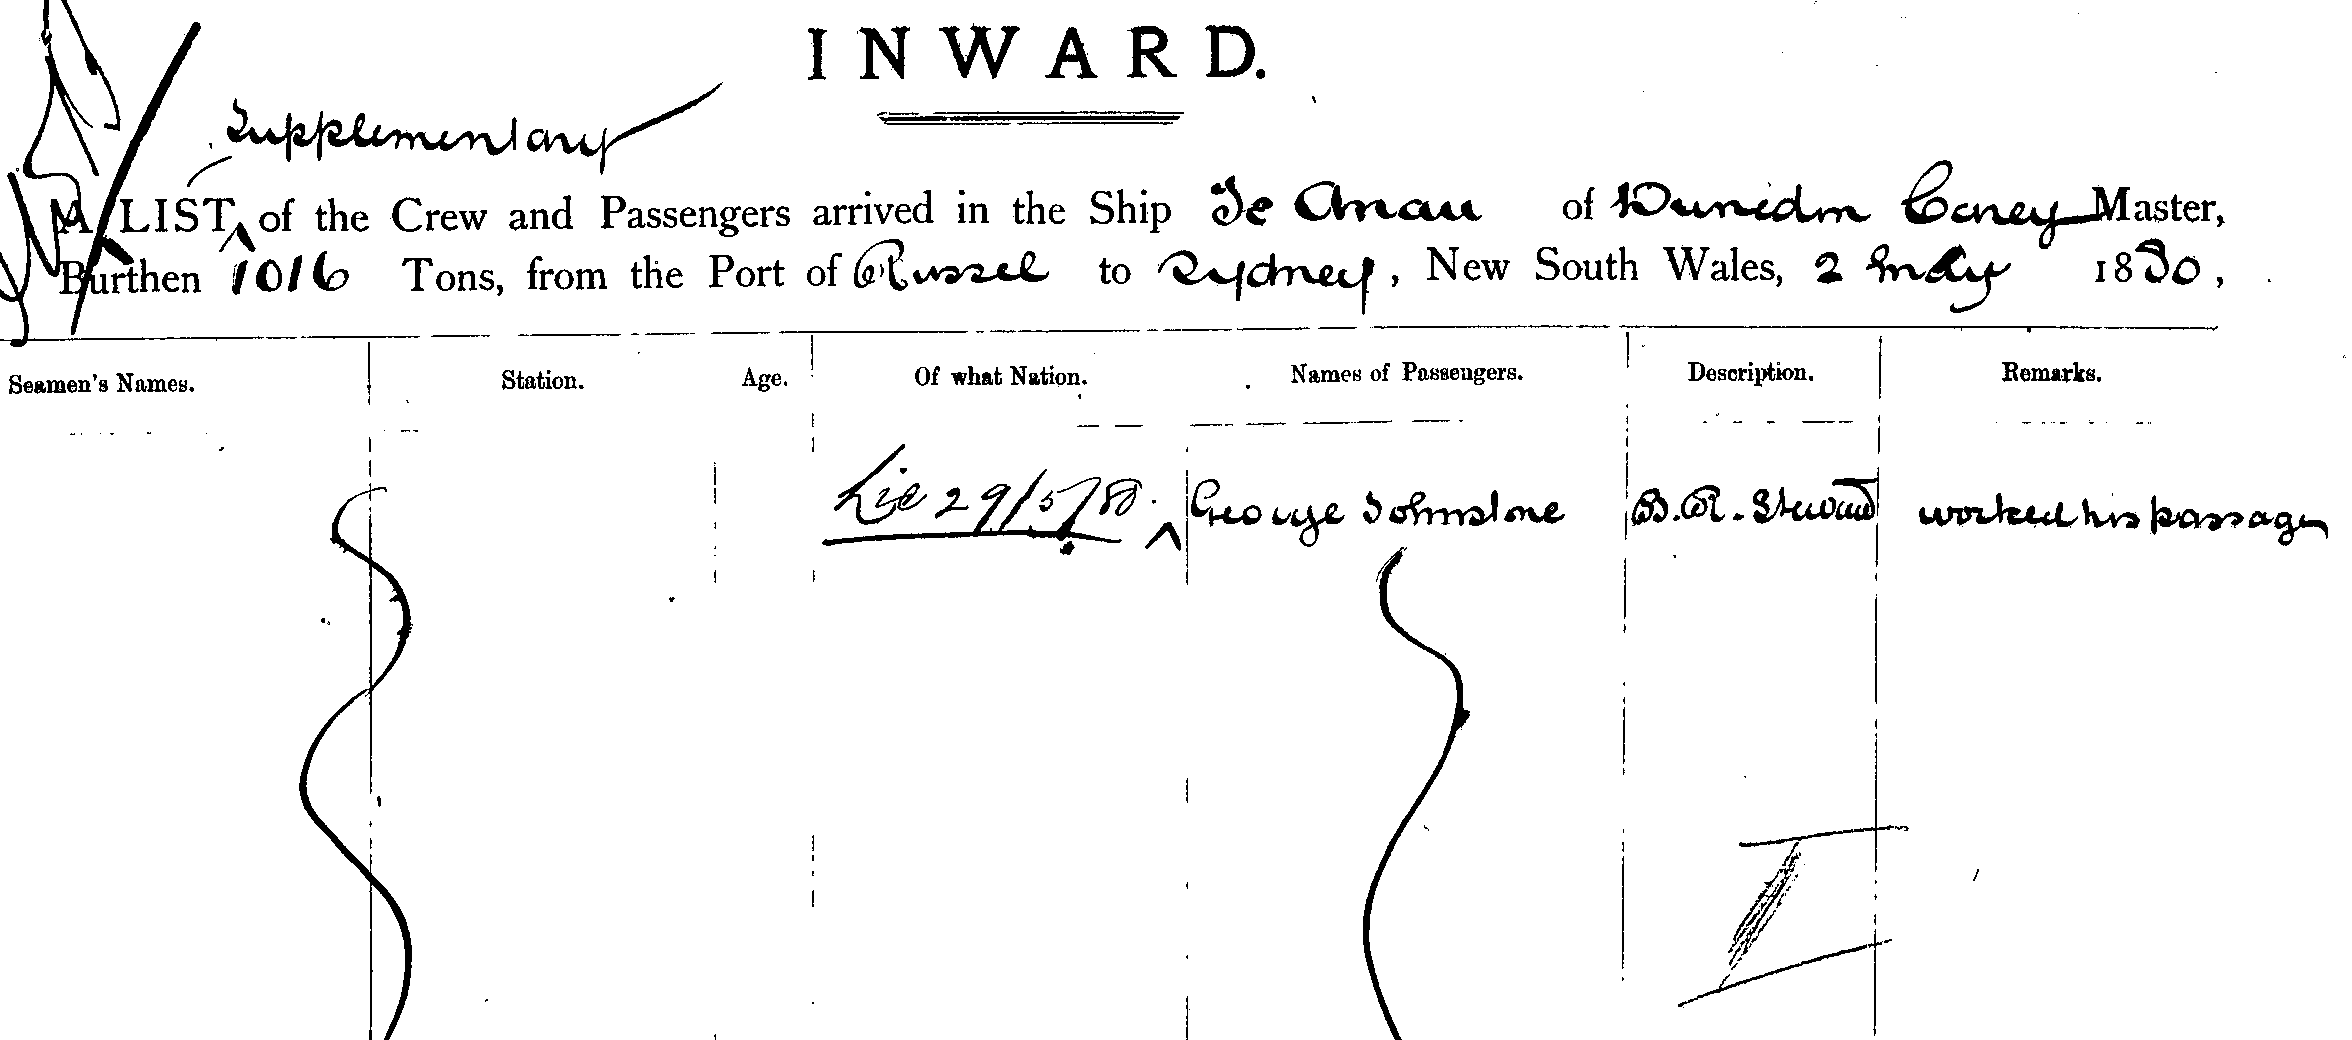 INWARD.
Supplementary
A LIST of the Crew and Passengers arrived in the Ship Te Anau of Dunedin Carey Master,
Burthen 1016 Tons, from the Port of Russel to Sydney, New South Wales, 2 May 1880,
Seamen's Names. Station. Age. Of what Nation. Names of Passengers. Description. Remarks.
29/5/80. George Johnstone B.R. Steward worked his passage